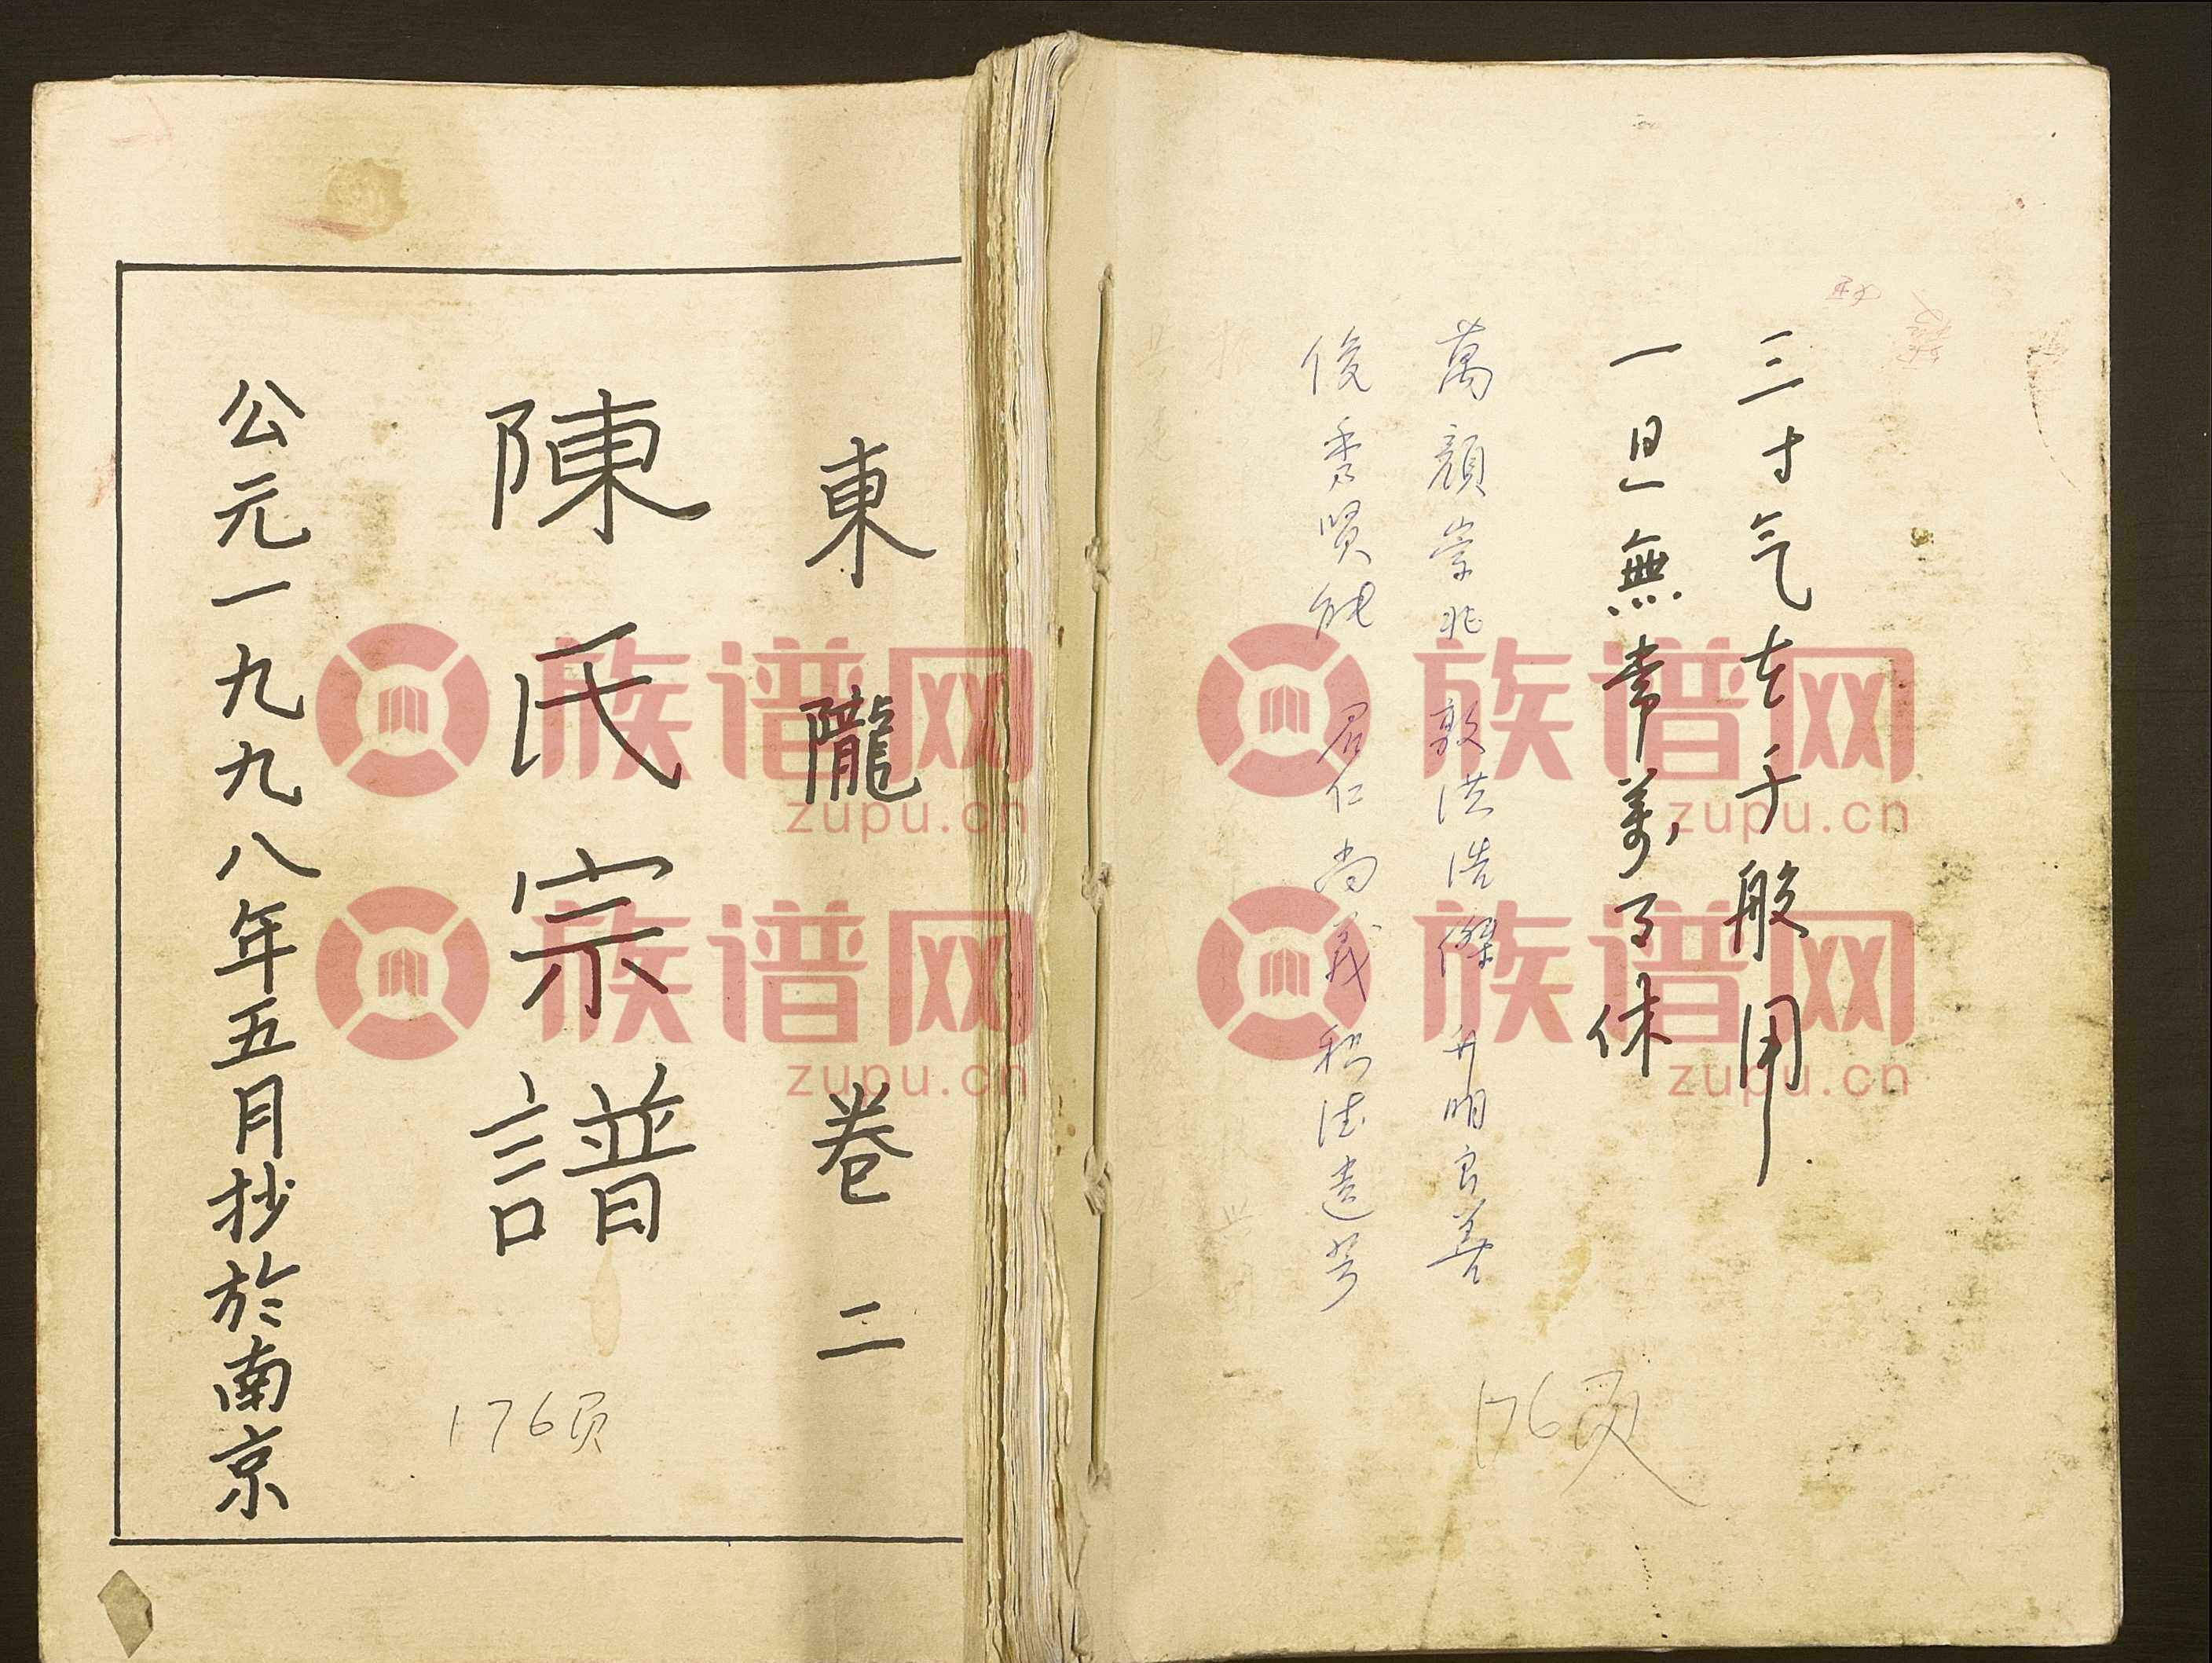 三寸气在千般用
一旦無常萬了休
萬顏崇兆敦洪浩傑升明良善
俊秀賢能君仁尚義積德遺芳
176页
東隴卷二
陳氏宗譜
176页
公元一九九八年五月抄於南京
族谱网
zupu.cn
族谱网
zupu.cn
族谱网
zupu.cn
族谱网
zupu.cn